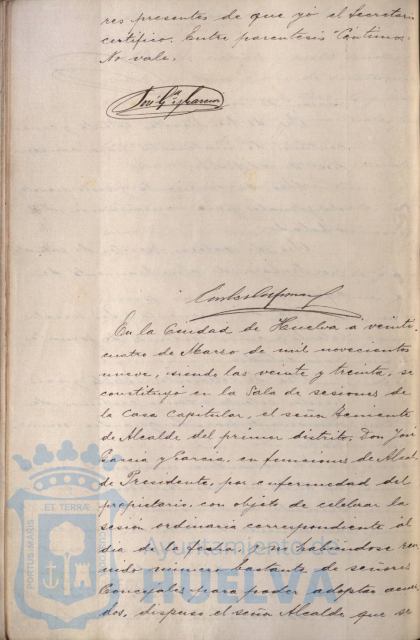 res presentes de que yo el Secretario
certifico. Entre parentesis "Continua"
No vale.
José Gª y García
En la Ciudad de Huelva a veinti-
cuatro de Marzo de mil novecientos
nueve, siendo las veinte y treinta, se
constituyó en la Sala de sesiones de
la Casa Capitular, el señor Teniente
de Alcalde del primer distrito, Don José
Garcia y Garcia, en funciones de Alcal-
de Presidente, por enfermedad del
propietario, con objeto de celebrar la
sesión ordinaria correspondiente al
dia de la fecha y no habiendose reu-
nido número bastante de señores
Concejales para poder adoptar acuer-
dos, dispuso el señor Alcalde que se
PORTUS MARIS
ET TERRAE
Ayuntamiento de
HUELVA